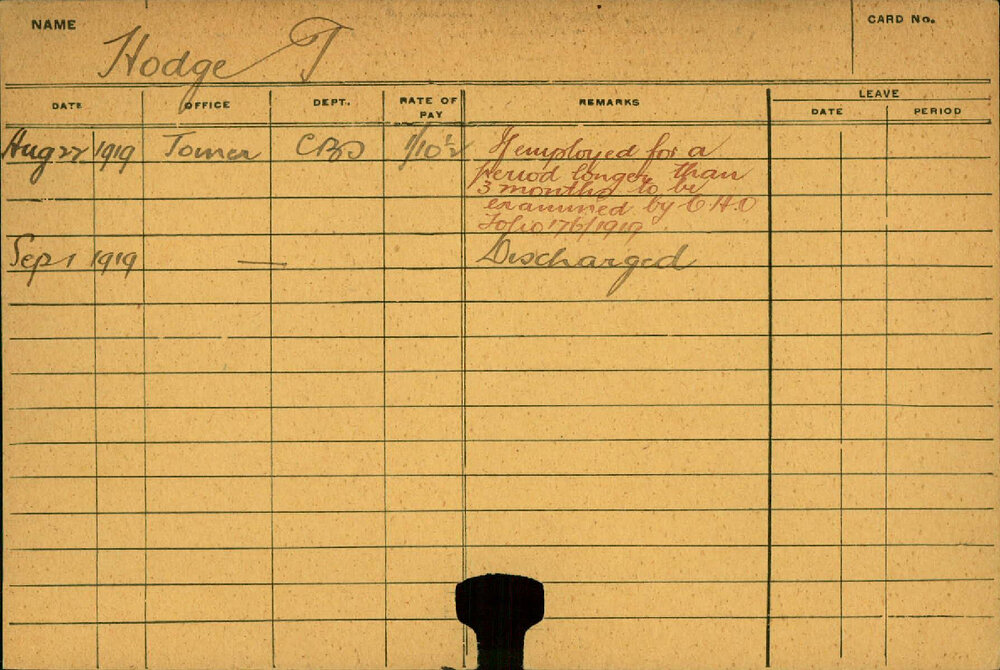 NAME
Hodge T
CARD No.
DATE OFFICE DEPT. RATE OF PAY REMARKS LEAVE
DATE PERIOD
Aug 22 1919 Joiner CBD 1/10½ If employed for a
period longer than
3 months to be
examined by C.H.O
Folio 176/1919
Sep 1 1919 — Discharged